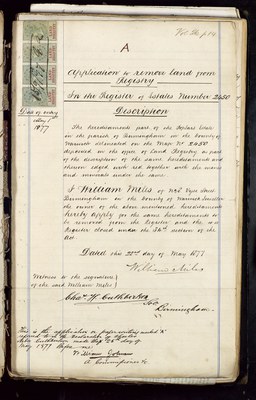 Vol. 56 p 14
A
Application to remove land from
Registry
In the Register of Estates Number 2450
Date of entry
May
1877
Description
The hereditaments part of the
in the parish of Birmingham in the County of
Warwick delineated on the Map No 2450
deposited in the office of Land Registry as part
of the description of the same hereditaments and
thereon edged with red together with the mines
and minerals under the same
I William Miles of No Vyse Street
Birmingham in the County of Warwick Jeweller
the owner of the above mentioned hereditaments
hereby apply for the same hereditaments to
be removed from the Register and the
Register closed under the 34th section of the
Act
Dated the 22nd day of May 1877
William Miles
Witness to the signature
of the said William Miles
Chas. W. Cuthbertson
Birmingham
This is the application or paper writing marked A
referred to in the declaration of
Cuthbertson made this day of
May 1877 Before me
A Commissioner &c